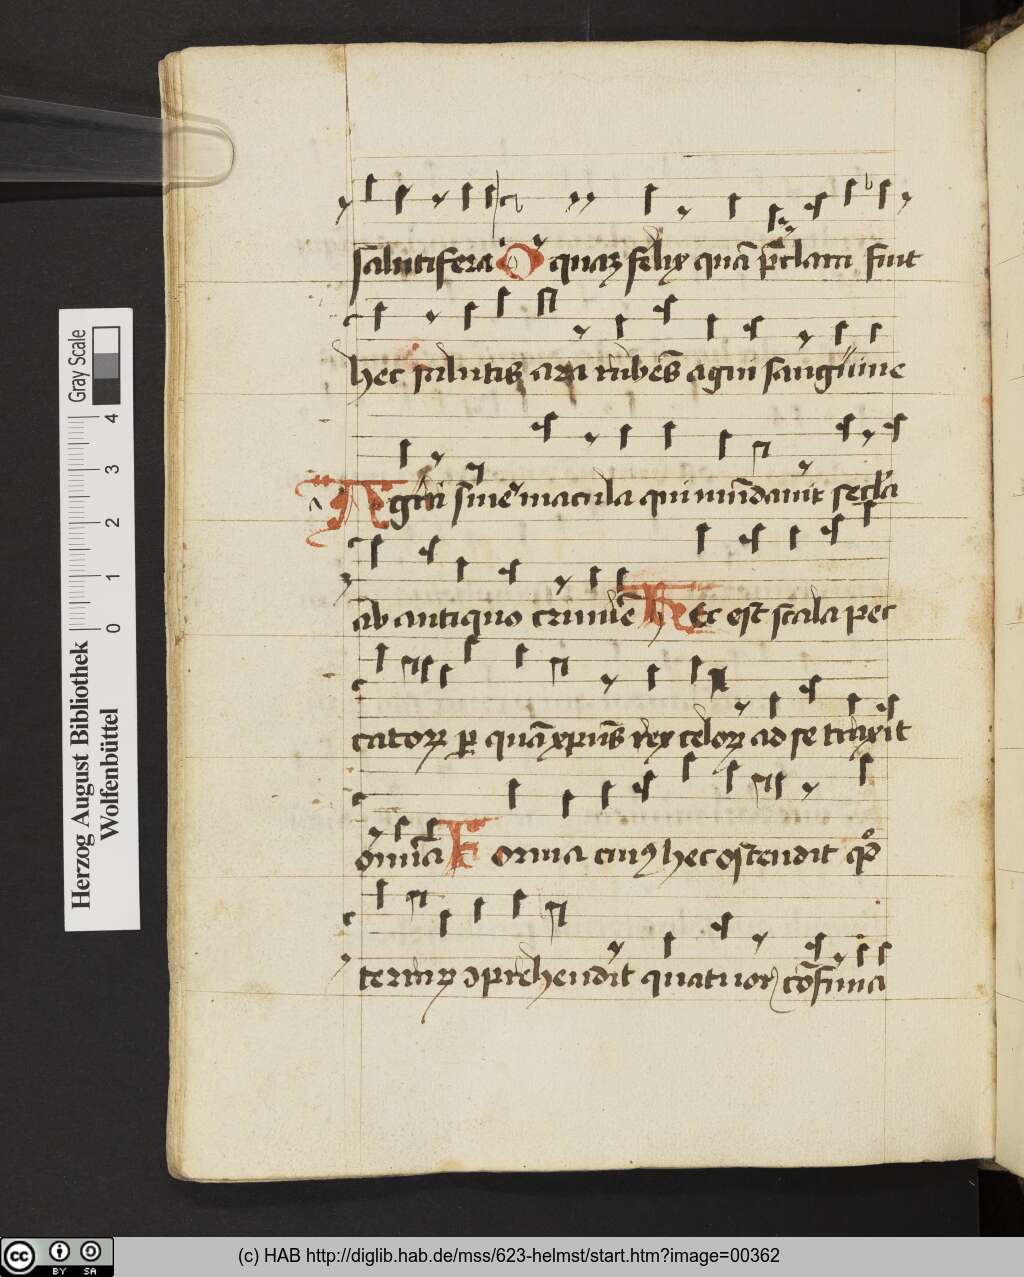 salutifera O quaȝ felix quā p̄clara fuit
hec salutis ara rubēs agni sanguine
Agni sine macula qui mūdauit secl'a
ab antiquo crimīe Hec est scala pec
catoꝝ ꝑ quā xpūs rex celoꝝ ad se traxit
omīa Forma cuiꝯ hec ostendit qͦd
terraꝝ ↄprehendit quatuor cōfinia
Herzog August Bibliothek
Wolfenbüttel
0 1 2 3 4
Gray Scale
cc BY SA
(c) HAB http://diglib.hab.de/mss/623-helmst/start.htm?image=00362